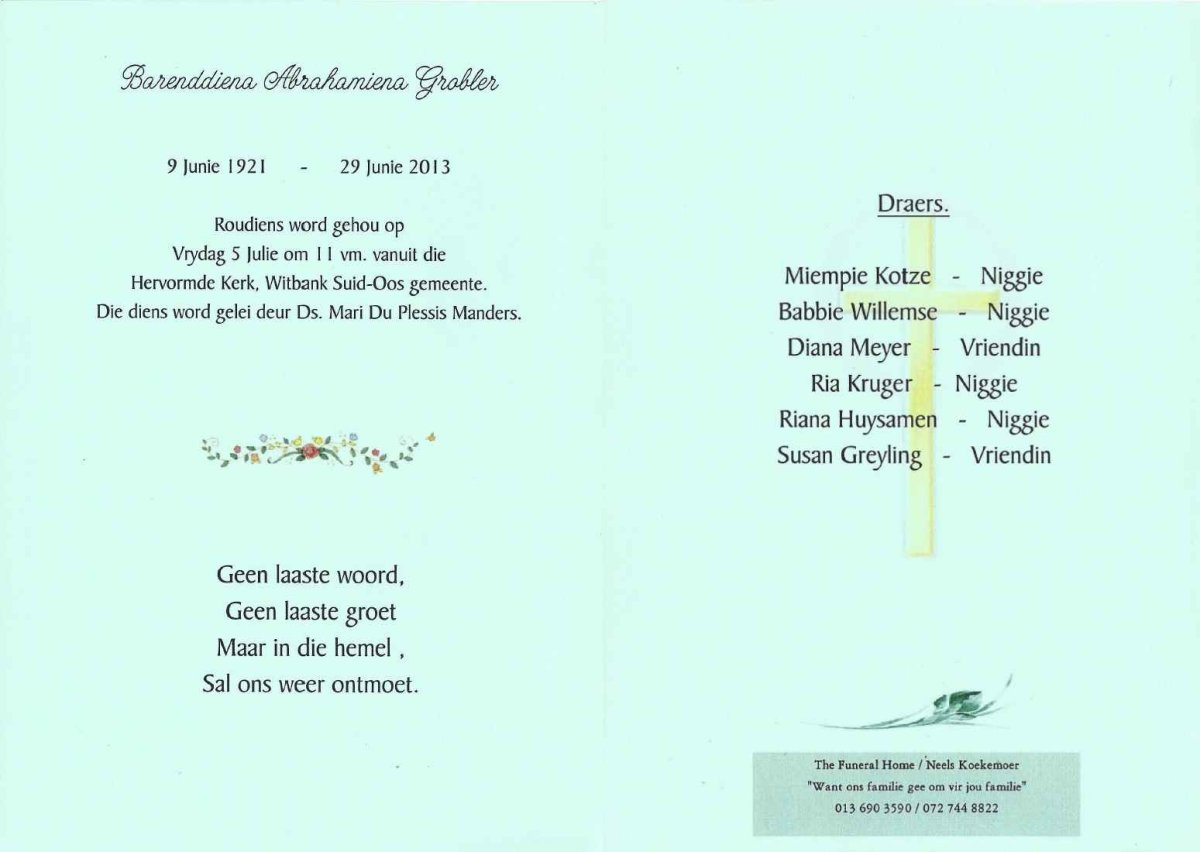 Barenddiena Abrahamiena Grobler
9 Junie 1921 - 29 Junie 2013
Roudiens word gehou op
Vrydag 5 Julie om 11 vm. vanuit die
Hervormde Kerk, Witbank Suid-Oos gemeente.
Die diens word gelei deur Ds. Mari Du Plessis Manders.
Geen laaste woord,
Geen laaste groet
Maar in die hemel ,
Sal ons weer ontmoet.
Draers.
Miempie Kotze - Niggie
Babbie Willemse - Niggie
Diana Meyer - Vriendin
Ria Kruger - Niggie
Riana Huysamen - Niggie
Susan Greyling - Vriendin
The Funeral Home / Neels Koekemoer
"Want ons familie gee om vir jou familie"
013 690 3590 / 072 744 8822